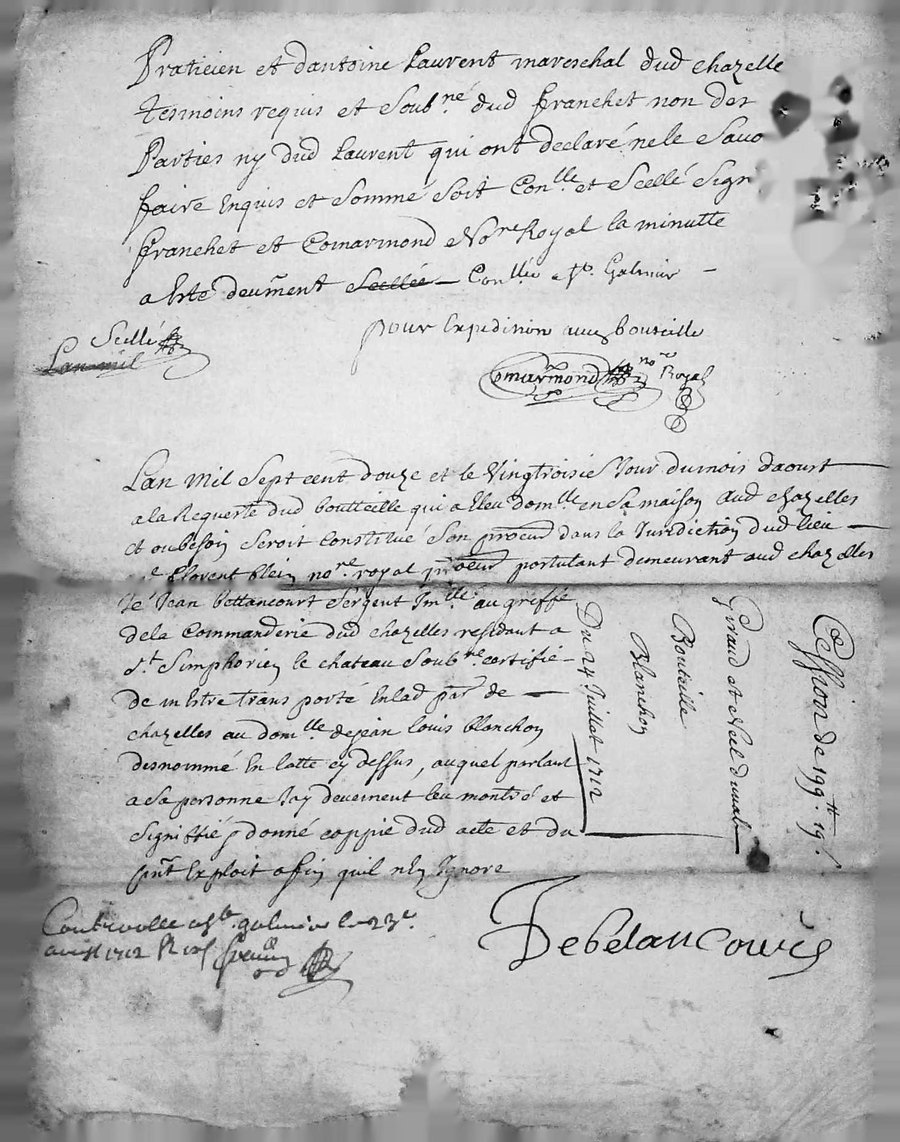 Praticien et dantoine Laurent mareschal dud chazelle
tesmoins requis et soubné dud franchet non des
Parties ny dud Laurent qui ont declaré ne le sauo
faire Enquis et sommé soit Conlle et scellé sign
franchet et Comarmond Nore Royal la minutte
a Este deument scellée Conllée a St. Galmier
pour Expedition aud bouteille
Scellé
Comarmond nore Royal
Lan mil sept cent douze et le vingtroisie Jour dumois daoust
ala Requeste dud boutteille qui a Eleu domlle en sa maison aud chazelles
et oubesoin seroit constitué son procur dans la Juridiction dud lieu
florent blein nore royal procur postulant demeurant aud chazelles
Jé Jean bettancourt sergent Imlle au greffe
dela Commanderie dud chazelles residant a
st. Simphorien le chateau soubné certifié
de mestre transporté Enlad par de
chazelles au domlle dejean louis blanchon
desnommé En latte cy dessus, auquel parlant
a sa personne Jay deuement leu montré et
signiffié donné coppie dud acte et du
pnt Exploit afin quil nen Ignore
Du 24 Juillet 1712
Blanchon
Bouteille
Giraud et Neel
Cession de 199tt 19s
Controolle a st galmier le 23e
aoust 1712
Debetancourt